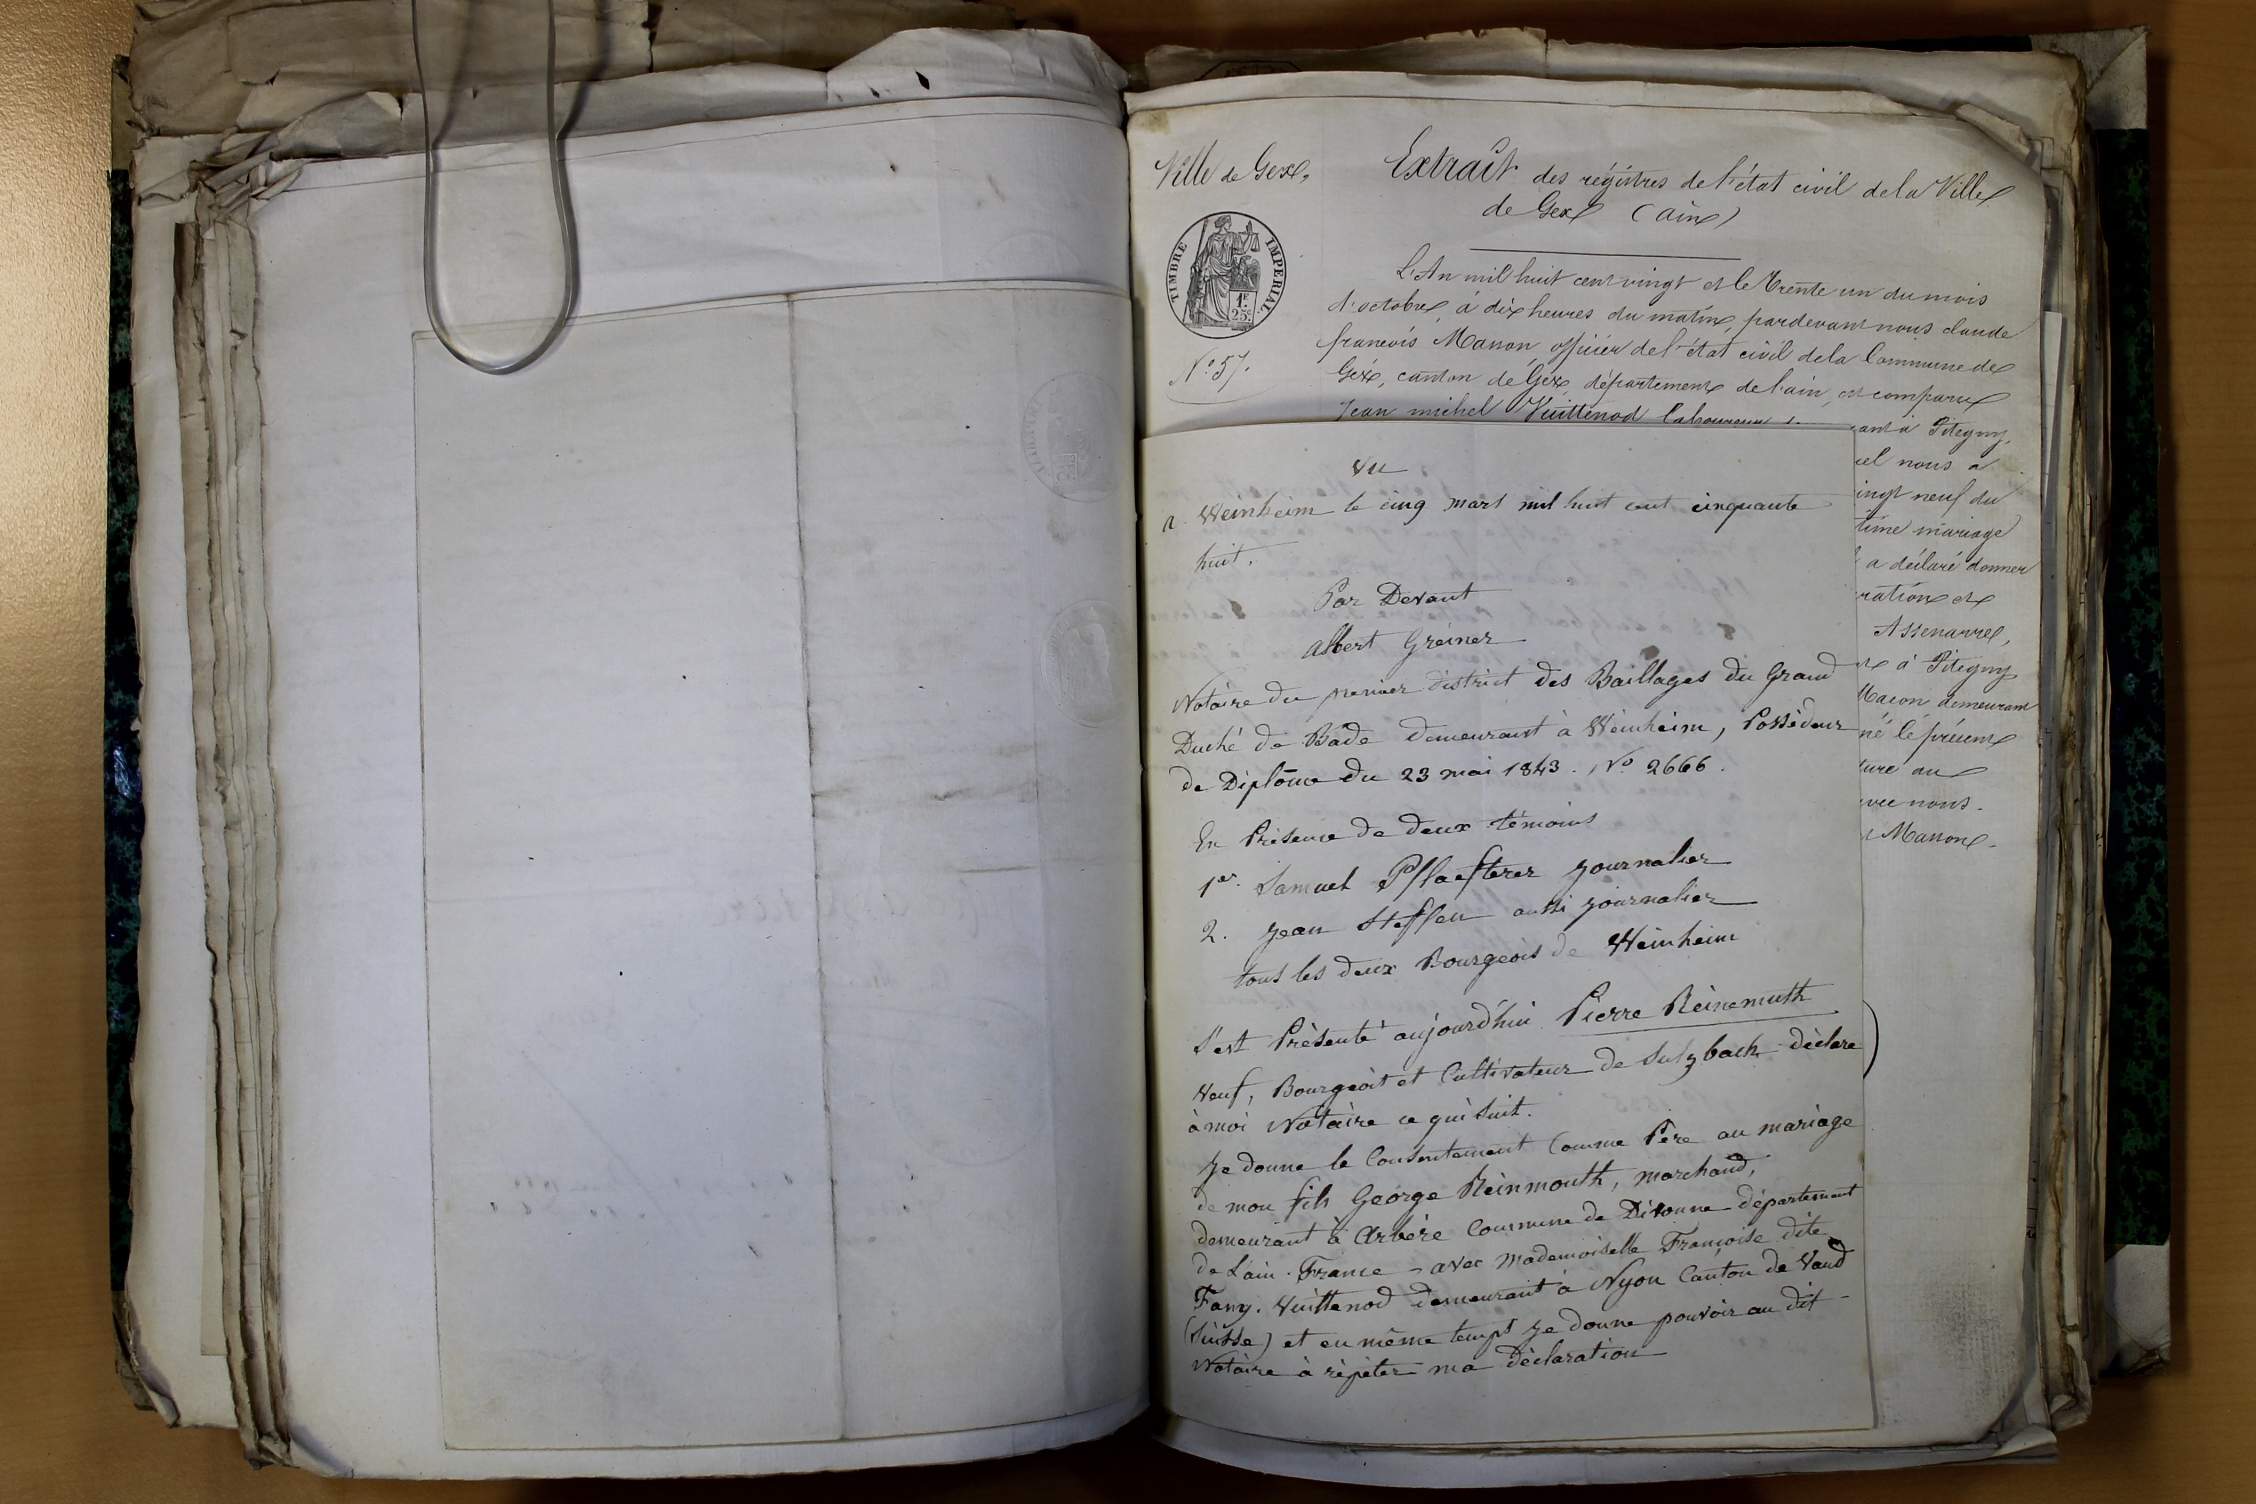 Ville de Gex,
Extrait des régistres de l'état civil de la Ville
de Gex (ain)
TIMBRE IMPERIAL
1F.
25c.
N° 57.
L'An mil huit cent vingt et le trente un du mois
d'octobre, à dix heures du matin, pardevant nous claude
francois Manon officier de l'état civil de la Commune de
Géx, canton de Géx, département de l'ain, est comparu
Jean michel Vuittenod laboureur
ant à Pitegny,
uel nous a
ingt neuf du
time mariage
a déclaré donner
ration et
Assenarre,
à Pitegny
Macon demeurant
né le présent
ture au
vec nous.
Manon.
Vu
a Weinheim le cinq mars mil huit cent cinquante
huit.
Par Devant
Albert Greiner
Notaire du premier district des Baillages du Grand
Duché de Bade demeurant à Weinheim, Possèdeur
de Diplôme du 23 mai 1843. N° 2666.
En Présence de deux témoins
1er. Samuel Pflaesterer journalier
2. Jean Steffen aussi journalier
tous les deux Bourgeois de Weinheim
S'est Présenté aujourd'hui Pierre Reinemuth
Veuf, Bourgeoit et Cultivateur de Sulzbach déclare
à moi Notaire ce qui suit.
Je donne le Consentement Comme Père au mariage
de mon fils George Reinmouth, marchand,
demeurant à Arbère Commune de Divonne département
de L'ain. France - avec Mademoiselle Françoise dite
Fany. Vuittenod demeurant à Nyon Canton de Vaud
(Suisse) et en même tempt je donne pouvoir au dit -
Notaire à répéter ma déclaration